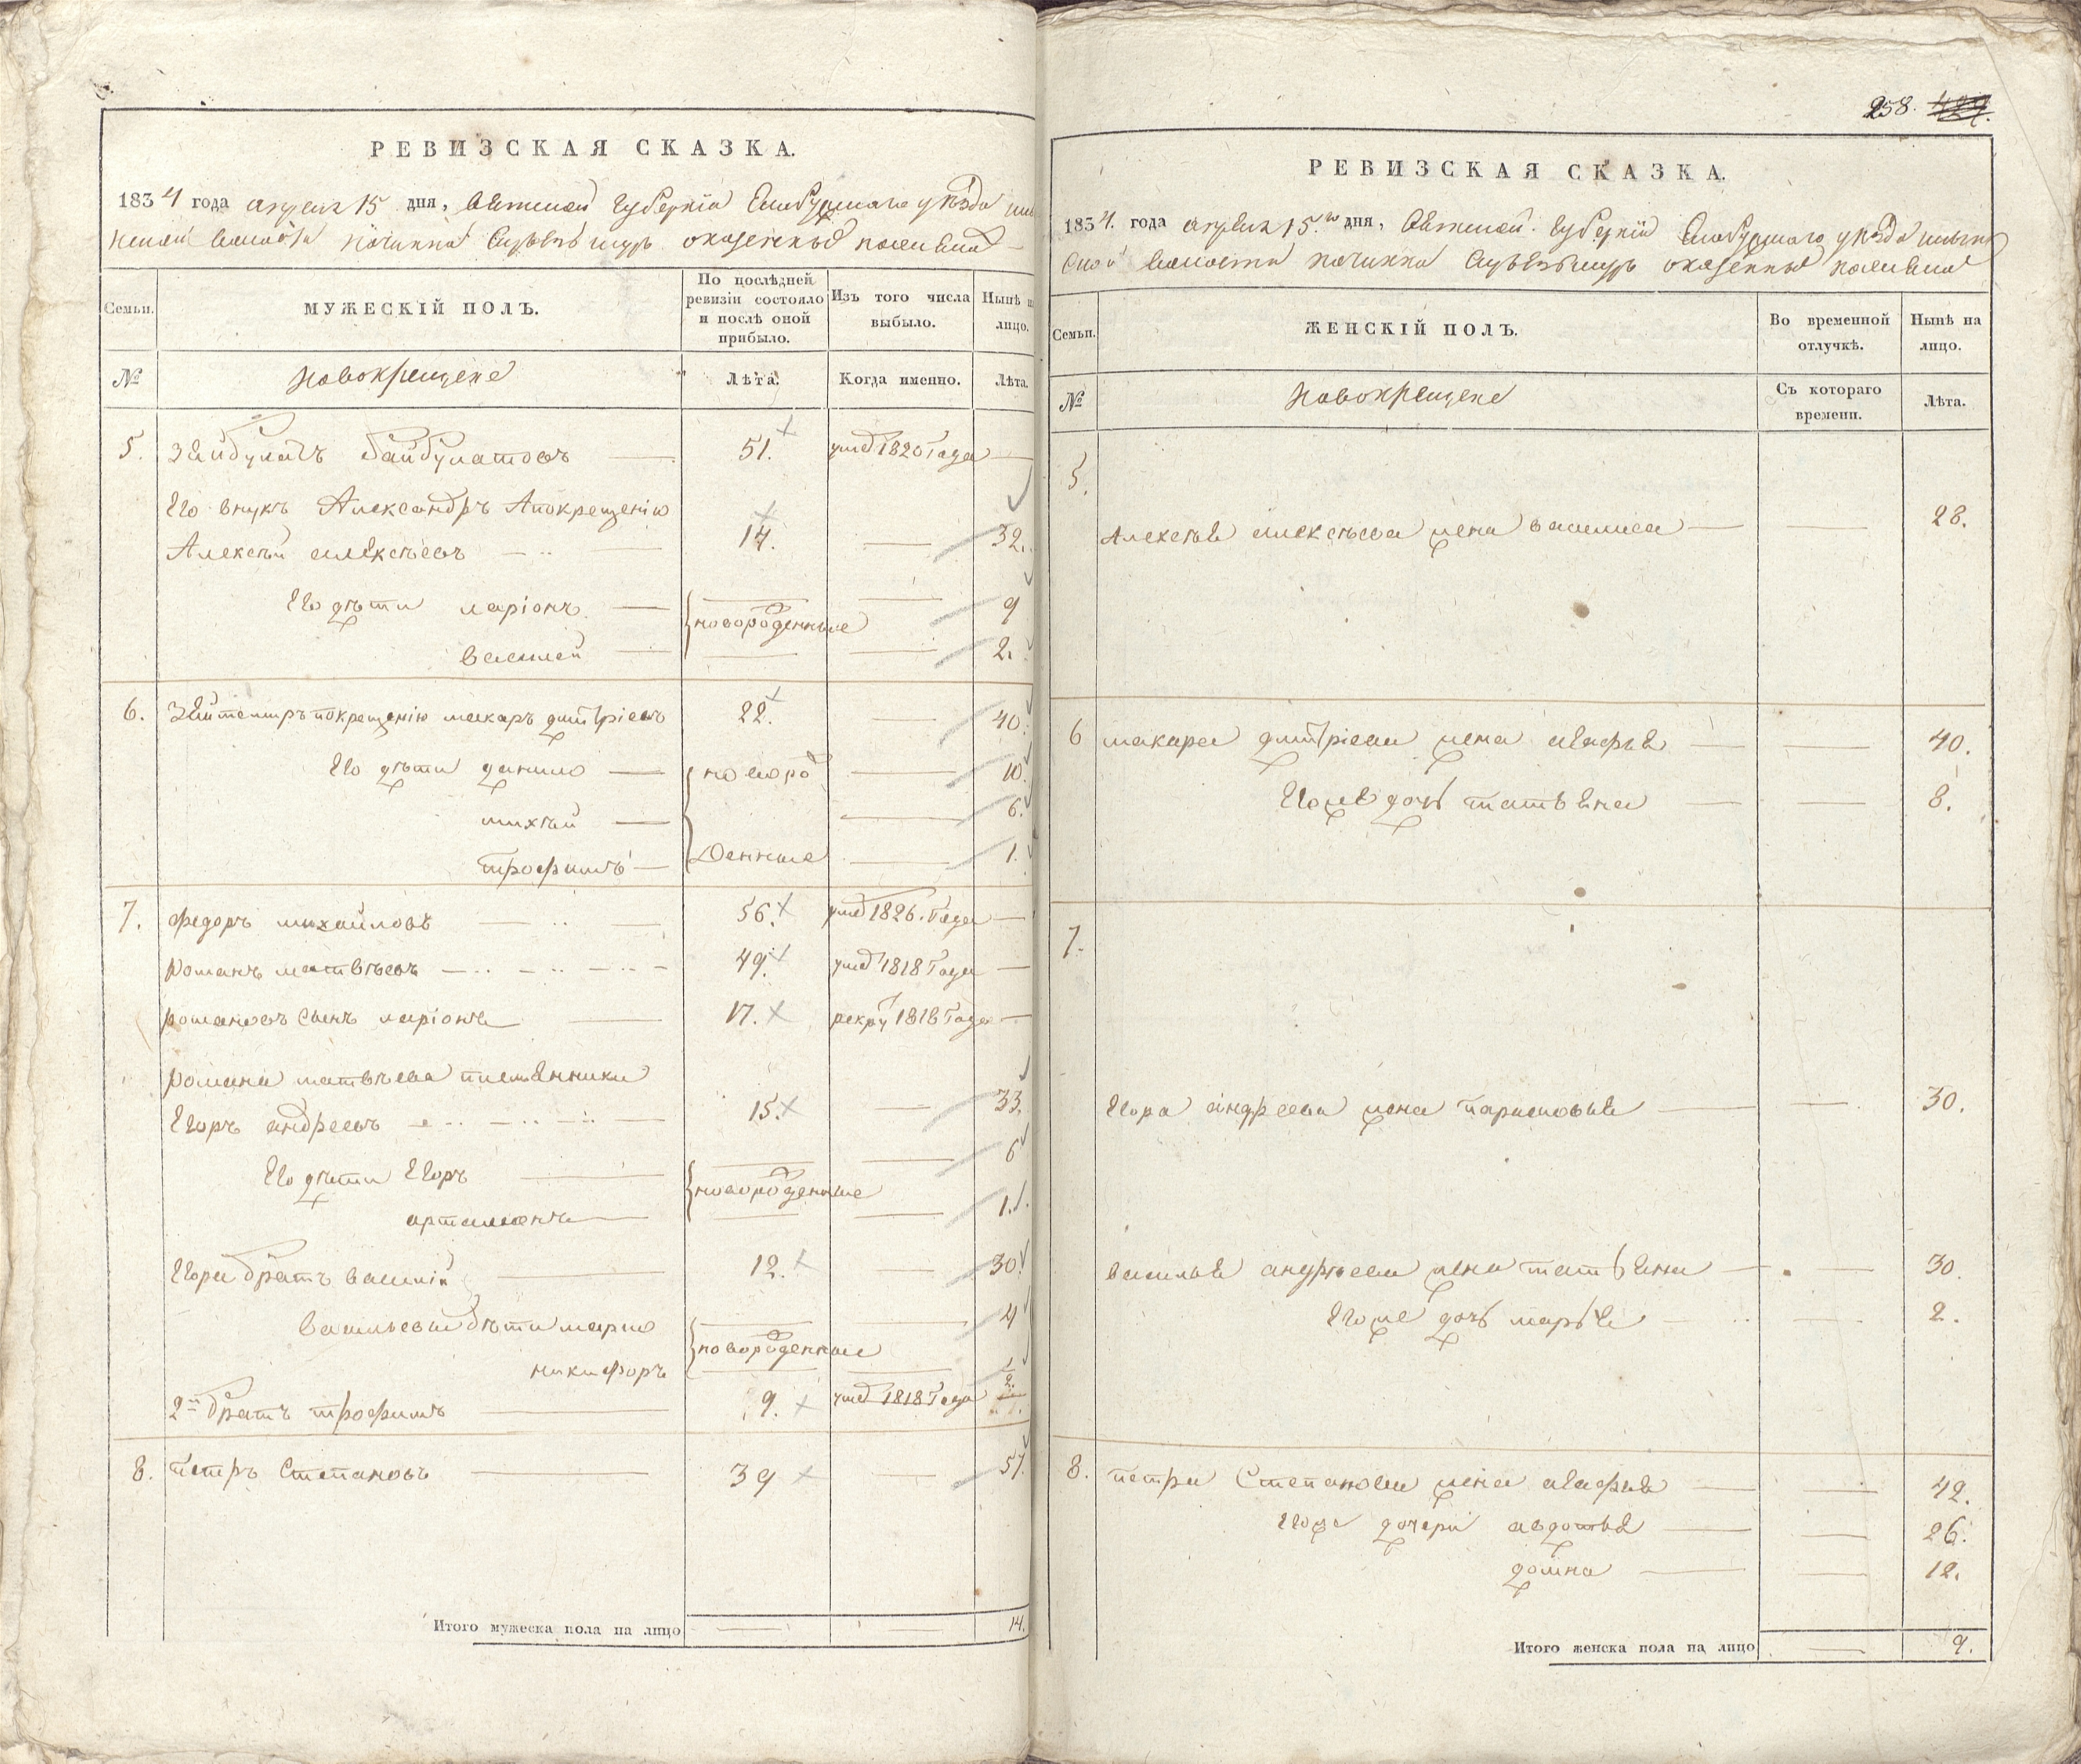 РЕВИЗСКАЯ СКАЗКА.
1834 года апреля 15 дня, Вятской губернiи Елабужскаго уѣзда
волости починка оказенныхъ
Семьи.
МУЖЕСКІЙ ПОЛЪ.
По послѣдней ревизіи состояло и послѣ оной прибыло.
Изъ того числа выбыло.
Нынѣ на лицо.
№
Новокрещене
Лѣта.
Когда именно.
Лѣта.
5. Зейбулатъ байбулатовъ 51. умеᷣ 1820 года
Его внукъ Александръ Апокрещенiю
Алексѣй алексѣевъ 17. 32.
Его дѣти ларiонъ новорожденные 9
василей 2.
6. Зеитемиръ покрещенiю макаръ дмитрiевъ 22. 40.
Его дѣти данило новорож 10.
михѣй 6.
трофимъ денные 1.
7. федоръ михайловъ 56. умеᷣ 1826. года
романъ матвѣевъ 49. умеᷣ 1818 года
романовъ сынъ ларiонъ 17. рекру 1818 года
романа матвѣева племенники
Егоръ андреевъ 15. 33.
Его дѣти Егоръ новорожденные 6
артамонъ 1.
Егора братъ василiй 12. 30.
васильевы дѣти марко новорожденные 4
никифоръ
2й братъ трофимъ 9. умеᷣ 1818 года
8. петръ Степановъ 39 57.
Итого мужеска пола на лицо 14.
258.
РЕВИЗСКАЯ СКАЗКА.
1834. года апреля 15.го дня, Вятской губернiи Елабужскаго уѣзда
волости починка оказенныхъ
Семьи.
ЖЕНСКІЙ ПОЛЪ.
Во временной отлучкѣ.
Нынѣ на лицо.
№
Новокрещене
Съ котораго времени.
Лѣта.
5.
Алексѣя алексѣева жена василиса 28.
6 макара дмитрiева жена агафья 40.
Егоже дочь татьяна 8.
7.
Егора андреева жена парасковья 30.
василья андрѣева жена татьяна 30.
Егоже дочь марья 2.
8. петра Степанова жена агафья 42.
Егоже дочери авдотья 26.
домна 12.
Итого женска пола на лицо 9.